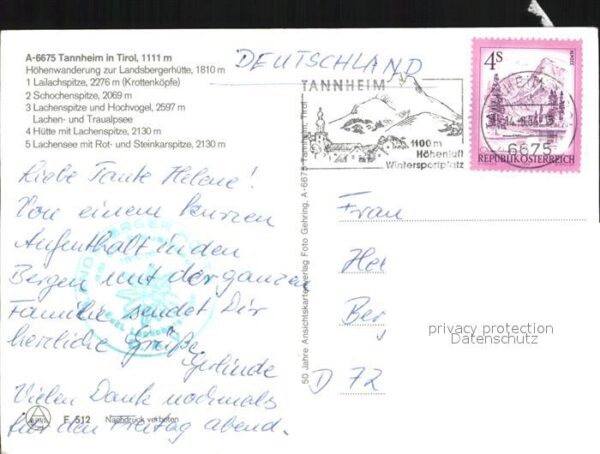 A-6675 Tannheim in Tirol, 1111 m
Höhenwanderung zur Landsbergerhütte, 1810 m
1 Lailachspitze, 2276 m (Krottenköpfe)
2 Schochenspitze, 2069 m
3 Lachenspitze und Hochvogel, 2597 m
Lachen- und Traualpsee
4 Hütte mit Lachenspitze, 2130 m
5 Lachensee mit Rot- und Steinkarspitze, 2130 m
Liebe Tante Helene!
Von einem kurzen
Aufenthalt in den
Bergen mit der ganzen
Familie sendet Dir
herzliche Grüße
Gerlinde
Vielen Dank nochmals
für den Freitag abend.
F. 512
Nachdruck verboten
50 Jahre Ansichtskartenverlag Foto Gehring, A-6675 Tannheim, Tirol
DEUTSCHLAND
TANNHEIM
1100 m
Höhenluft
Wintersportplatz
4 S
REPUBLIK ÖSTERREICH
TANNHEIM
6675
Frau
Hei
Berg
D 72
privacy protection
Datenschutz